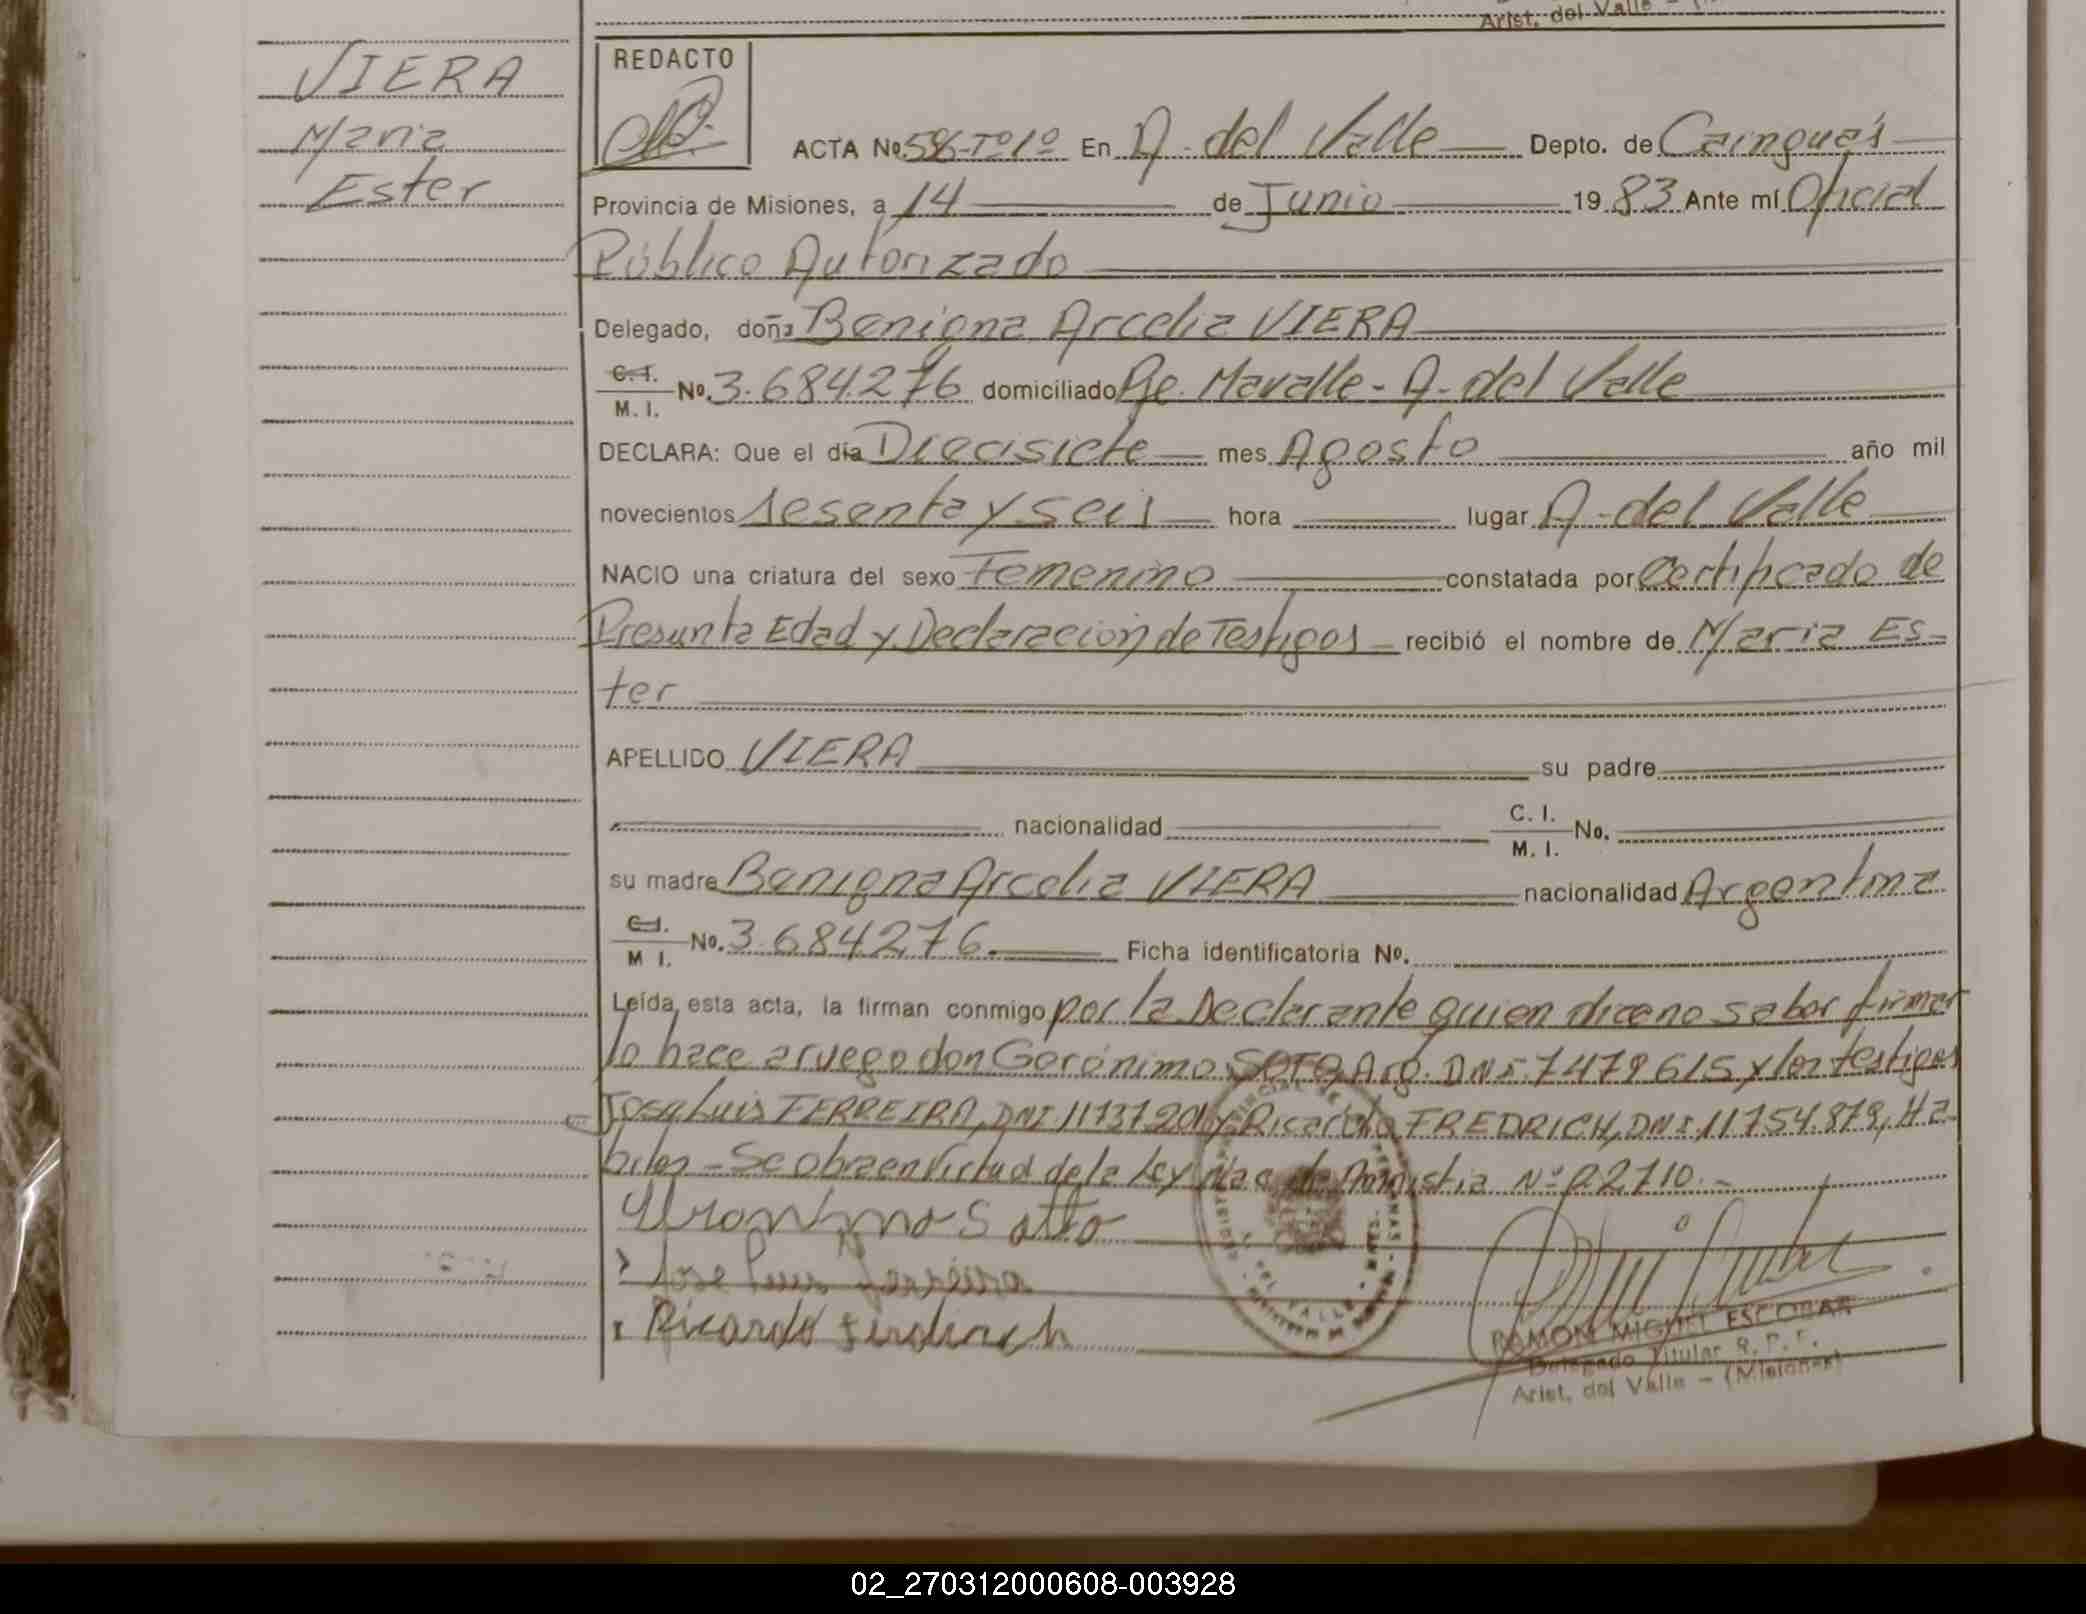 Arist. del Valle - (
VIERA
Maria
Ester
REDACTO
ACTA Nº 596-Tº1º En A. del Valle Depto. de Cainguás
Provincia de Misiones, a 14 de Junio 1983 Ante mí Oficial
Público Autorizado
Delegado, doña Benigna Arcelia VIERA
C.I. M.I. Nº. 3.684.276 domiciliado Pje. Mavalle - A. del Valle
DECLARA: Que el día Diecisiete mes Agosto año mil
novecientos sesenta y seis hora lugar A. del Valle
NACIO una criatura del sexo Femenino constatada por Certificado de
Presunta Edad y Declaracion de Testigos recibió el nombre de Maria Es-
ter
APELLIDO VIERA su padre
nacionalidad C.I. M.I. No.
su madre Benigna Arcelia VIERA nacionalidad Argentina
C.I. M I. Nº. 3.684.276. Ficha identificatoria Nº.
Leída esta acta, la firman conmigo por la Declarante quien dice no saber firmar
lo hace a ruego don Gerónimo SOTO, Arg. DNI. 7479615 y los testigos
Jose Luis FERREIRA, DNI 11737201 y Ricardo FREDRICH, DNI. 11.754.879, Ha-
biles - Se obra en virtud de la Ley Nac. de Amnistia Nº 22710.-
Jose Luis Ferreira
Ricardo
RAMON MIGUEL ESCOBAR
Delegado Titular R. P. P.
Arist. del Valle - (Misiones)
02_270312000608-003928